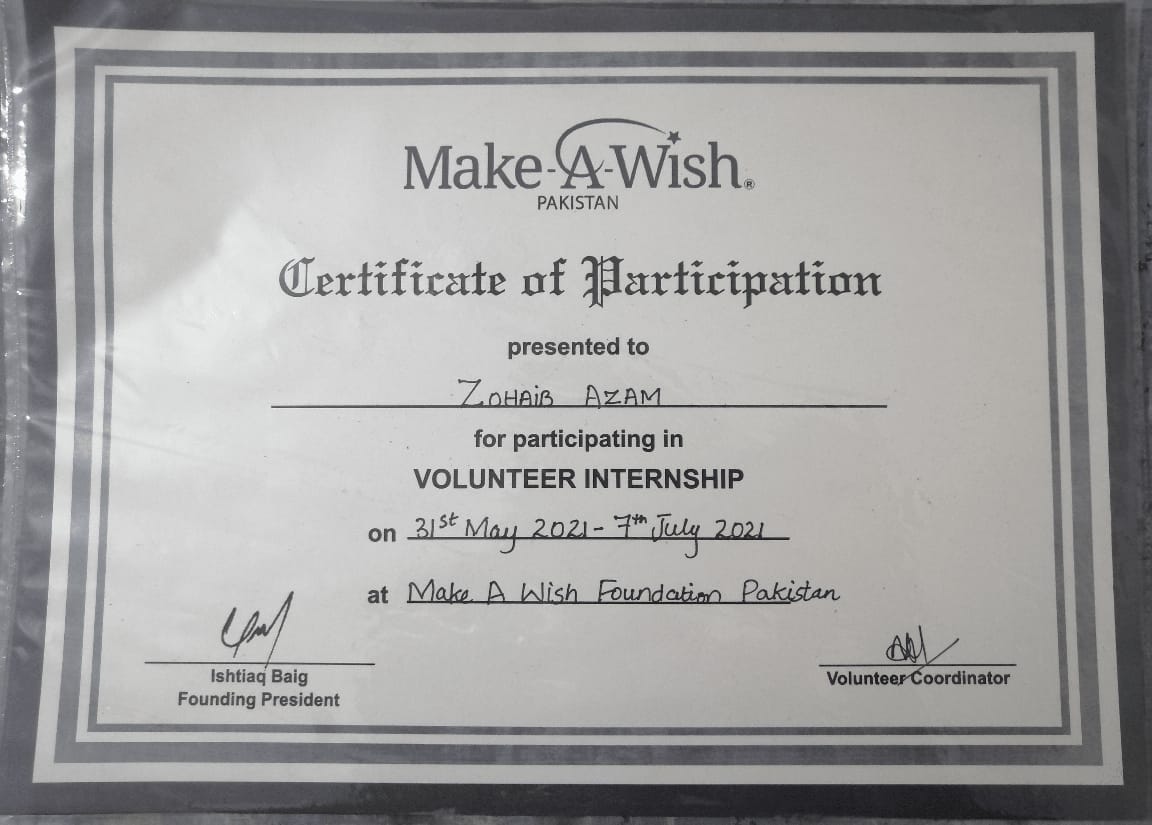 Make-A-Wish®
PAKISTAN
Certificate of Participation
presented to
ZOHAIB AZAM
for participating in
VOLUNTEER INTERNSHIP
on 31st May 2021 - 7th July 2021
at Make A Wish Foundation Pakistan
Ishtiaq Baig
Founding President
Volunteer Coordinator